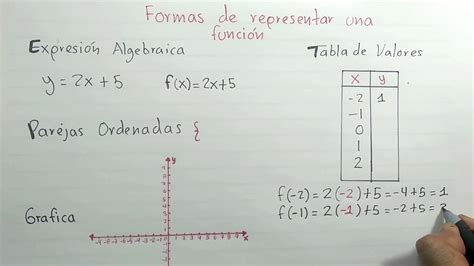 Formas de representar una
función
Expresión Algebraica
y = 2x + 5 f(x) = 2x+5
Parejas Ordenadas {
Grafica
y
Tabla de Valores
x y
-2 1
-1
0
1
2
f(-2) = 2(-2)+5 = -4+5 = 1
f(-1) = 2(-1)+5 = -2+5 =